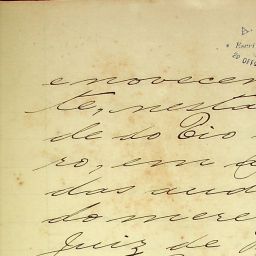 D.
Escri
20 OFF
enovecen
te, nesta
de do Rio
ro, em a
das aud
do mere
Juiz de